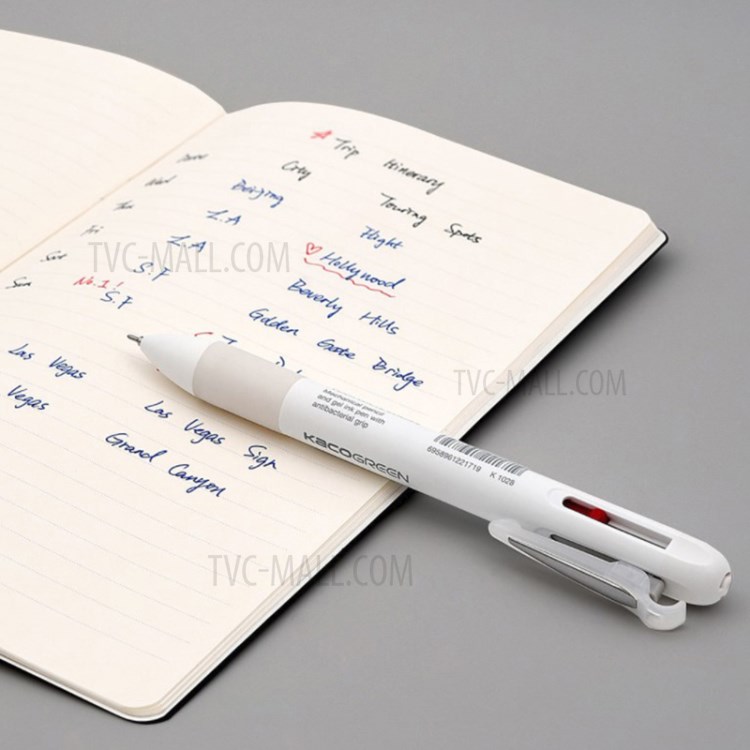 ☆ Trip Itinerary
City Touring Spots
Wed Beijing Flight
Thu L.A ♡ Hollywood
Fri L.A Beverly Hills
Sat S.F Golden Gate Bridge
Sun No.1! S.F
Las Vegas Las Vegas Sign
Vegas Grand Canyon
Mechanical pencil
and gel ink pen with
antibacterial grip
KACOGREEN
6958961221719 K 1028
TVC-MALL.COM
TVC-MALL.COM
TVC-MALL.COM